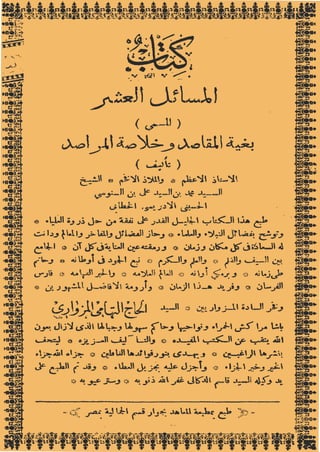 كتاب
المسائل العشر
( المسمى )
بغية المقاصد وخلاصة المراصد
( تأليف )
الاستاذ الاعظم * والملاذ الافخم * الشيخ
السيد محمد بن السيد على بن السنوسي
الحسنى الادريسى الخطابى
طبع هذا الكتاب الجليل القدر على نفقة من حل ذروة العلياء *
وتوشح بفضائل النبلاء والعلماء * وحاز الفضائل والمفاخر والمعالى ودانت
له السعادة فى كل مكان وزمان * ورمقته عين العناية فى كل آن * الجامع
بين السيف والقلم * والعلم والكرم * نبع الجود فى أوطانه * وحاتم
طى زمانه * وبرمكى أوانه * العالم العلامه * والحبر الفهامه * فارس
الفرسان * وفريد هذا الزمان * وأرومة الافاضل المشهورين *
وفخر السادة المزواريين * السيد الحاج التهامى المزوارى
باشا مراكش الحمراء ونواحيها وحاكم سهولها وجبالها الذى لازال بعون
الله ينقب عن الكتب المفيده * والتآليف العزيزه * ليتحف
بنشرها الراغبين * ويهدى بنور فوائدها الناطقين * جزاه الله جزاء
الخير وخير الجزاء * وأجزل عليه بجزيل العطاء * وقد تم الطبع على
يد وكيله السيد قاسم الدكالى غفر الله ذنوبه * وستر عيوبه *
طبع بمطبعة المعاهد بجوار قسم الجمالية بمصر